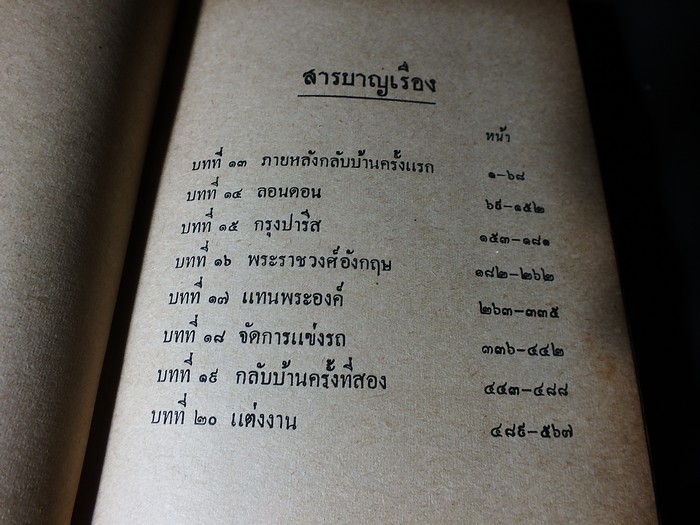 สารบาญเรื่อง
หน้า
บทที่ ๑๓ ภายหลังกลับบ้านครั้งแรก ๑-๖๘
บทที่ ๑๔ ลอนดอน ๖๙-๑๕๒
บทที่ ๑๕ กรุงปารีส ๑๕๓-๑๘๑
บทที่ ๑๖ พระราชวงศ์อังกฤษ ๑๘๒-๒๖๒
บทที่ ๑๗ แทนพระองค์ ๒๖๓-๓๓๕
บทที่ ๑๘ จัดการแข่งรถ ๓๓๖-๔๔๒
บทที่ ๑๙ กลับบ้านครั้งที่สอง ๔๔๓-๔๘๘
บทที่ ๒๐ แต่งงาน ๔๘๙-๕๖๗